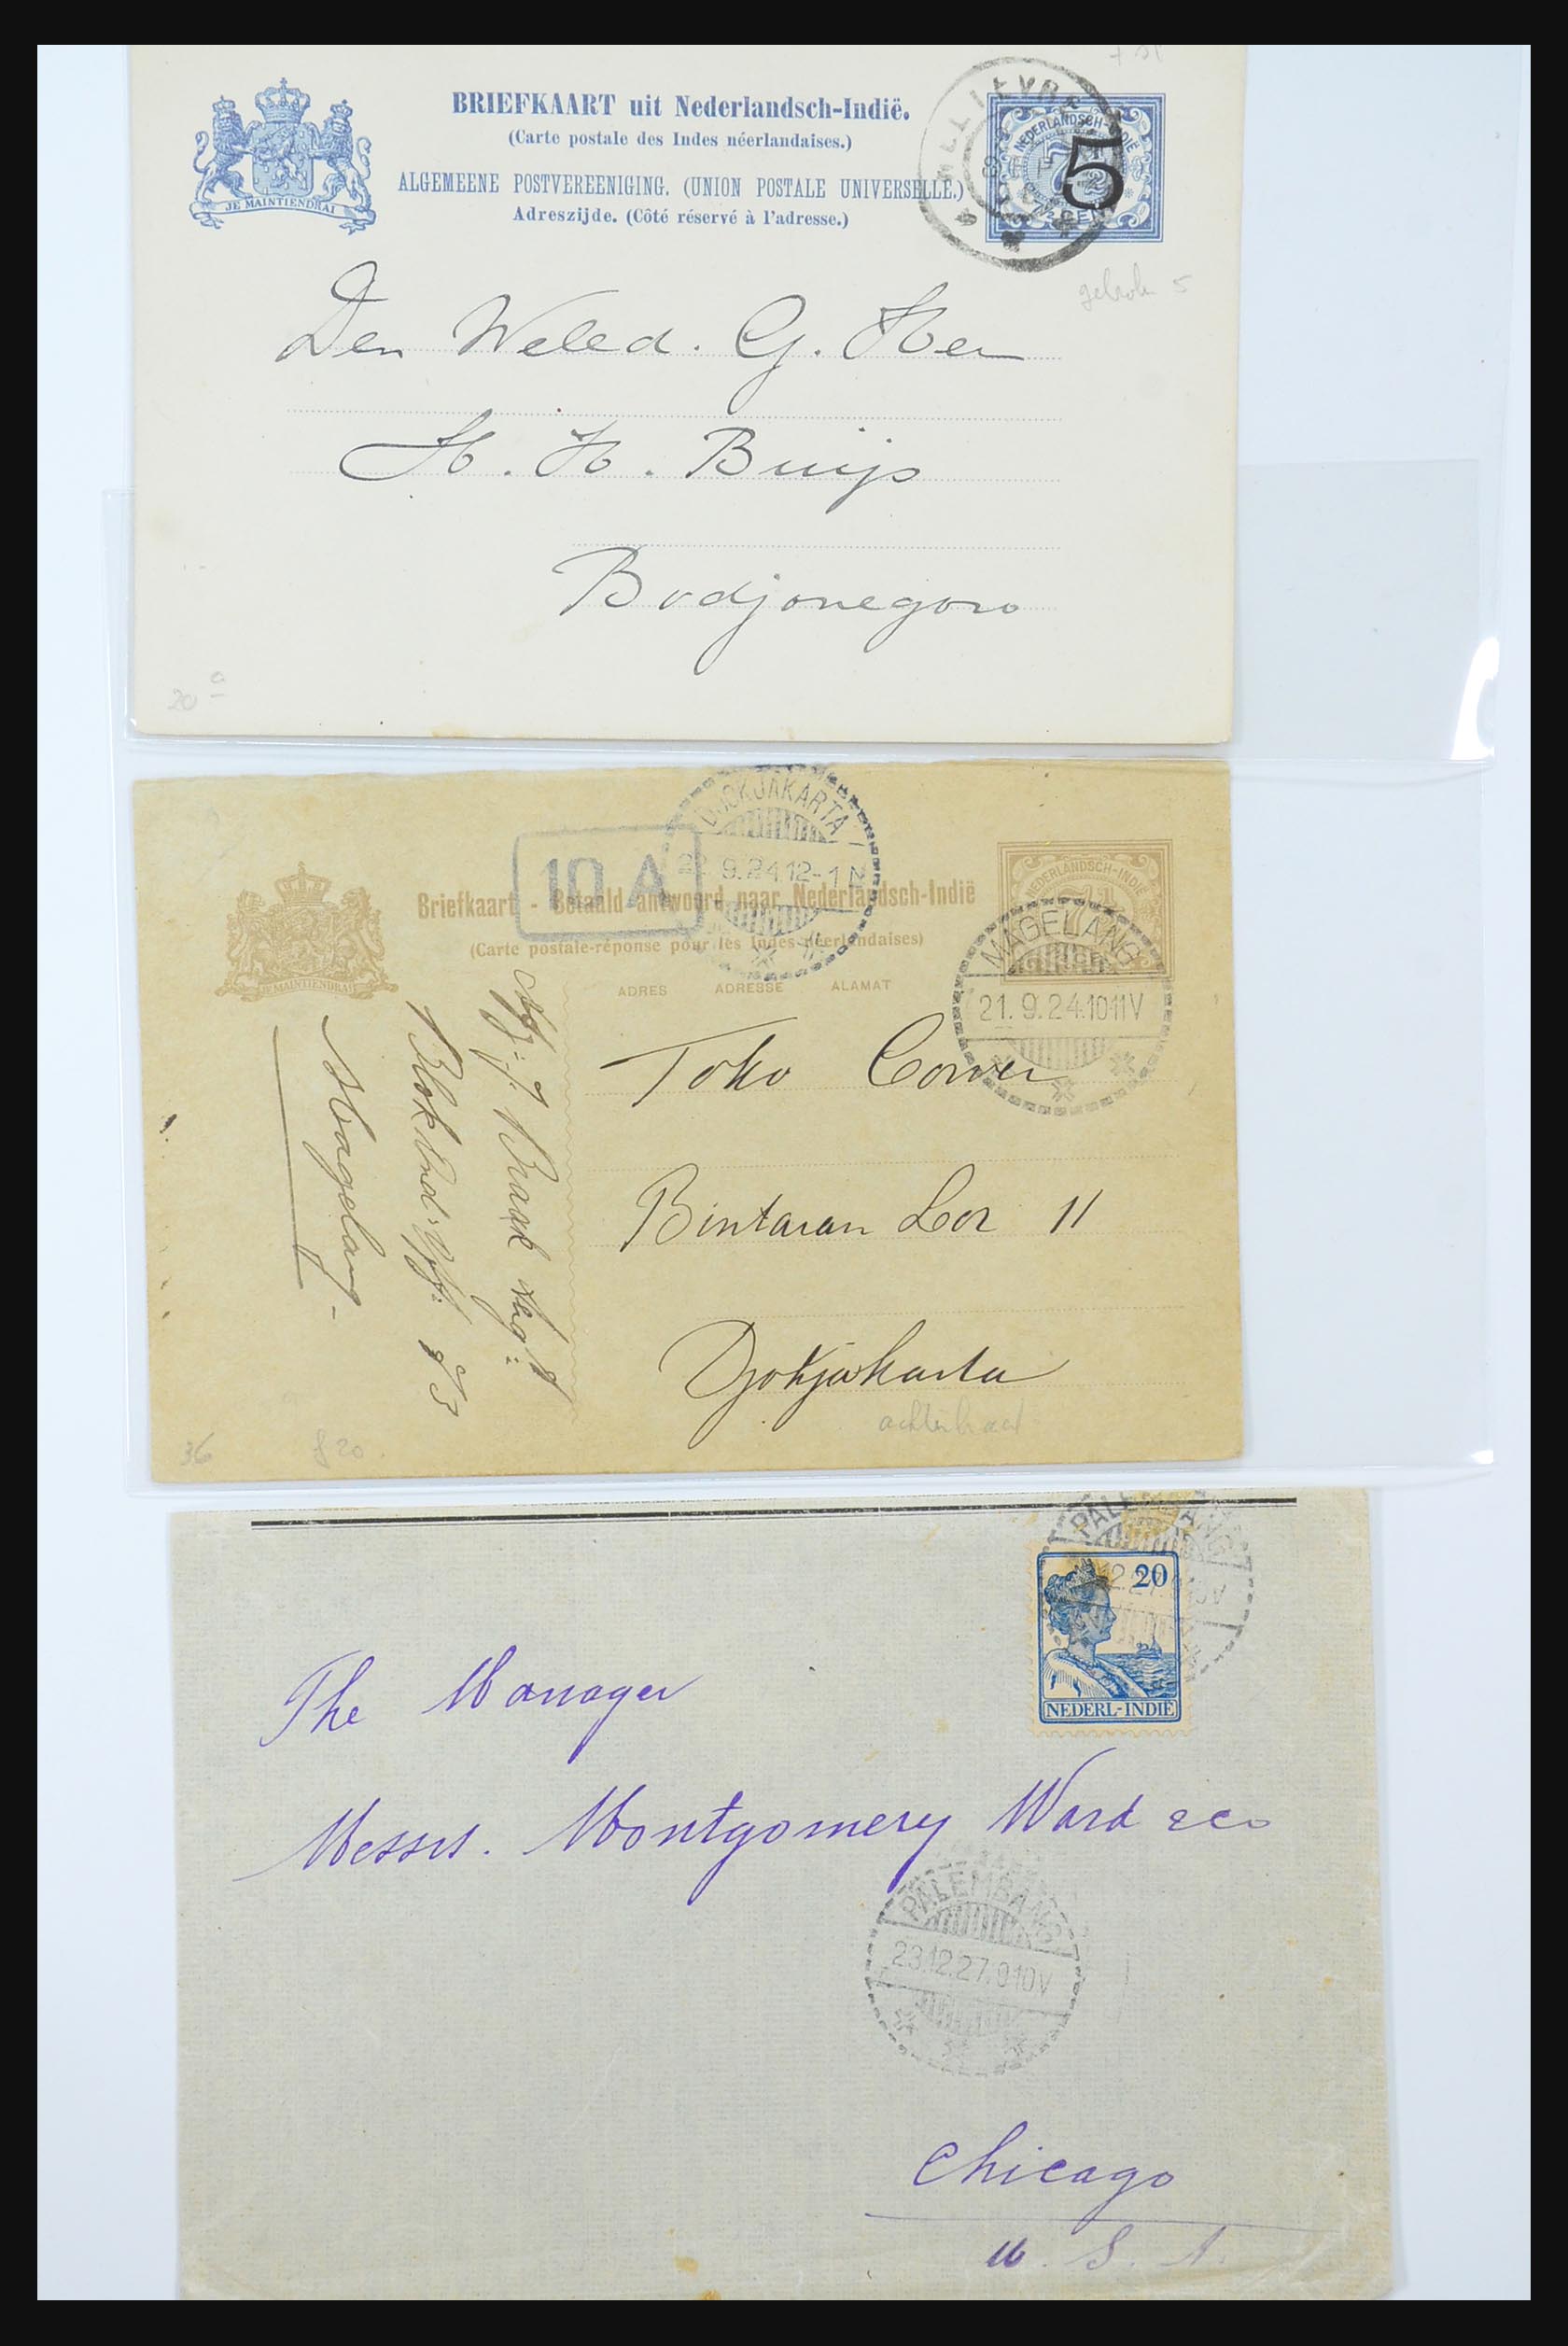 BRIEFKAART uit Nederlandsch-Indië.
(Carte postale des Indes néerlandaises.)
ALGEMEENE POSTVEREENIGING. (UNION POSTALE UNIVERSELLE.)
Adreszijde. (Côté réservé à l'adresse.)
JE MAINTIENDRAI
NEDERLANDSCH-INDIË
5
gebroken 5
Den Weled. G. Heer
H. H. Buijs
Bodjonegoro
20 a
DJOKJAKARTA
22.9.24.12-1 N
10 A
Briefkaart - Betaald antwoord naar Nederlandsch-Indië
(Carte postale-réponse pour les Indes néerlandaises)
JE MAINTIENDRAI
NEDERLANDSCH-INDIË
7½
ADRES ADRESSE ALAMAT
MAGELANG
21.9.24.10-11V
Toko
Bintaran Lor 11
Djokjakarta
Afz: J. Braak
Magelang
achterkant
36
f 20.
PALEMBANG
20
NEDERL-INDIË
The Manager
Messrs. Montgomery Ward & Co
PALEMBANG
23.12.27.9-10V
Chicago
U. S. A.